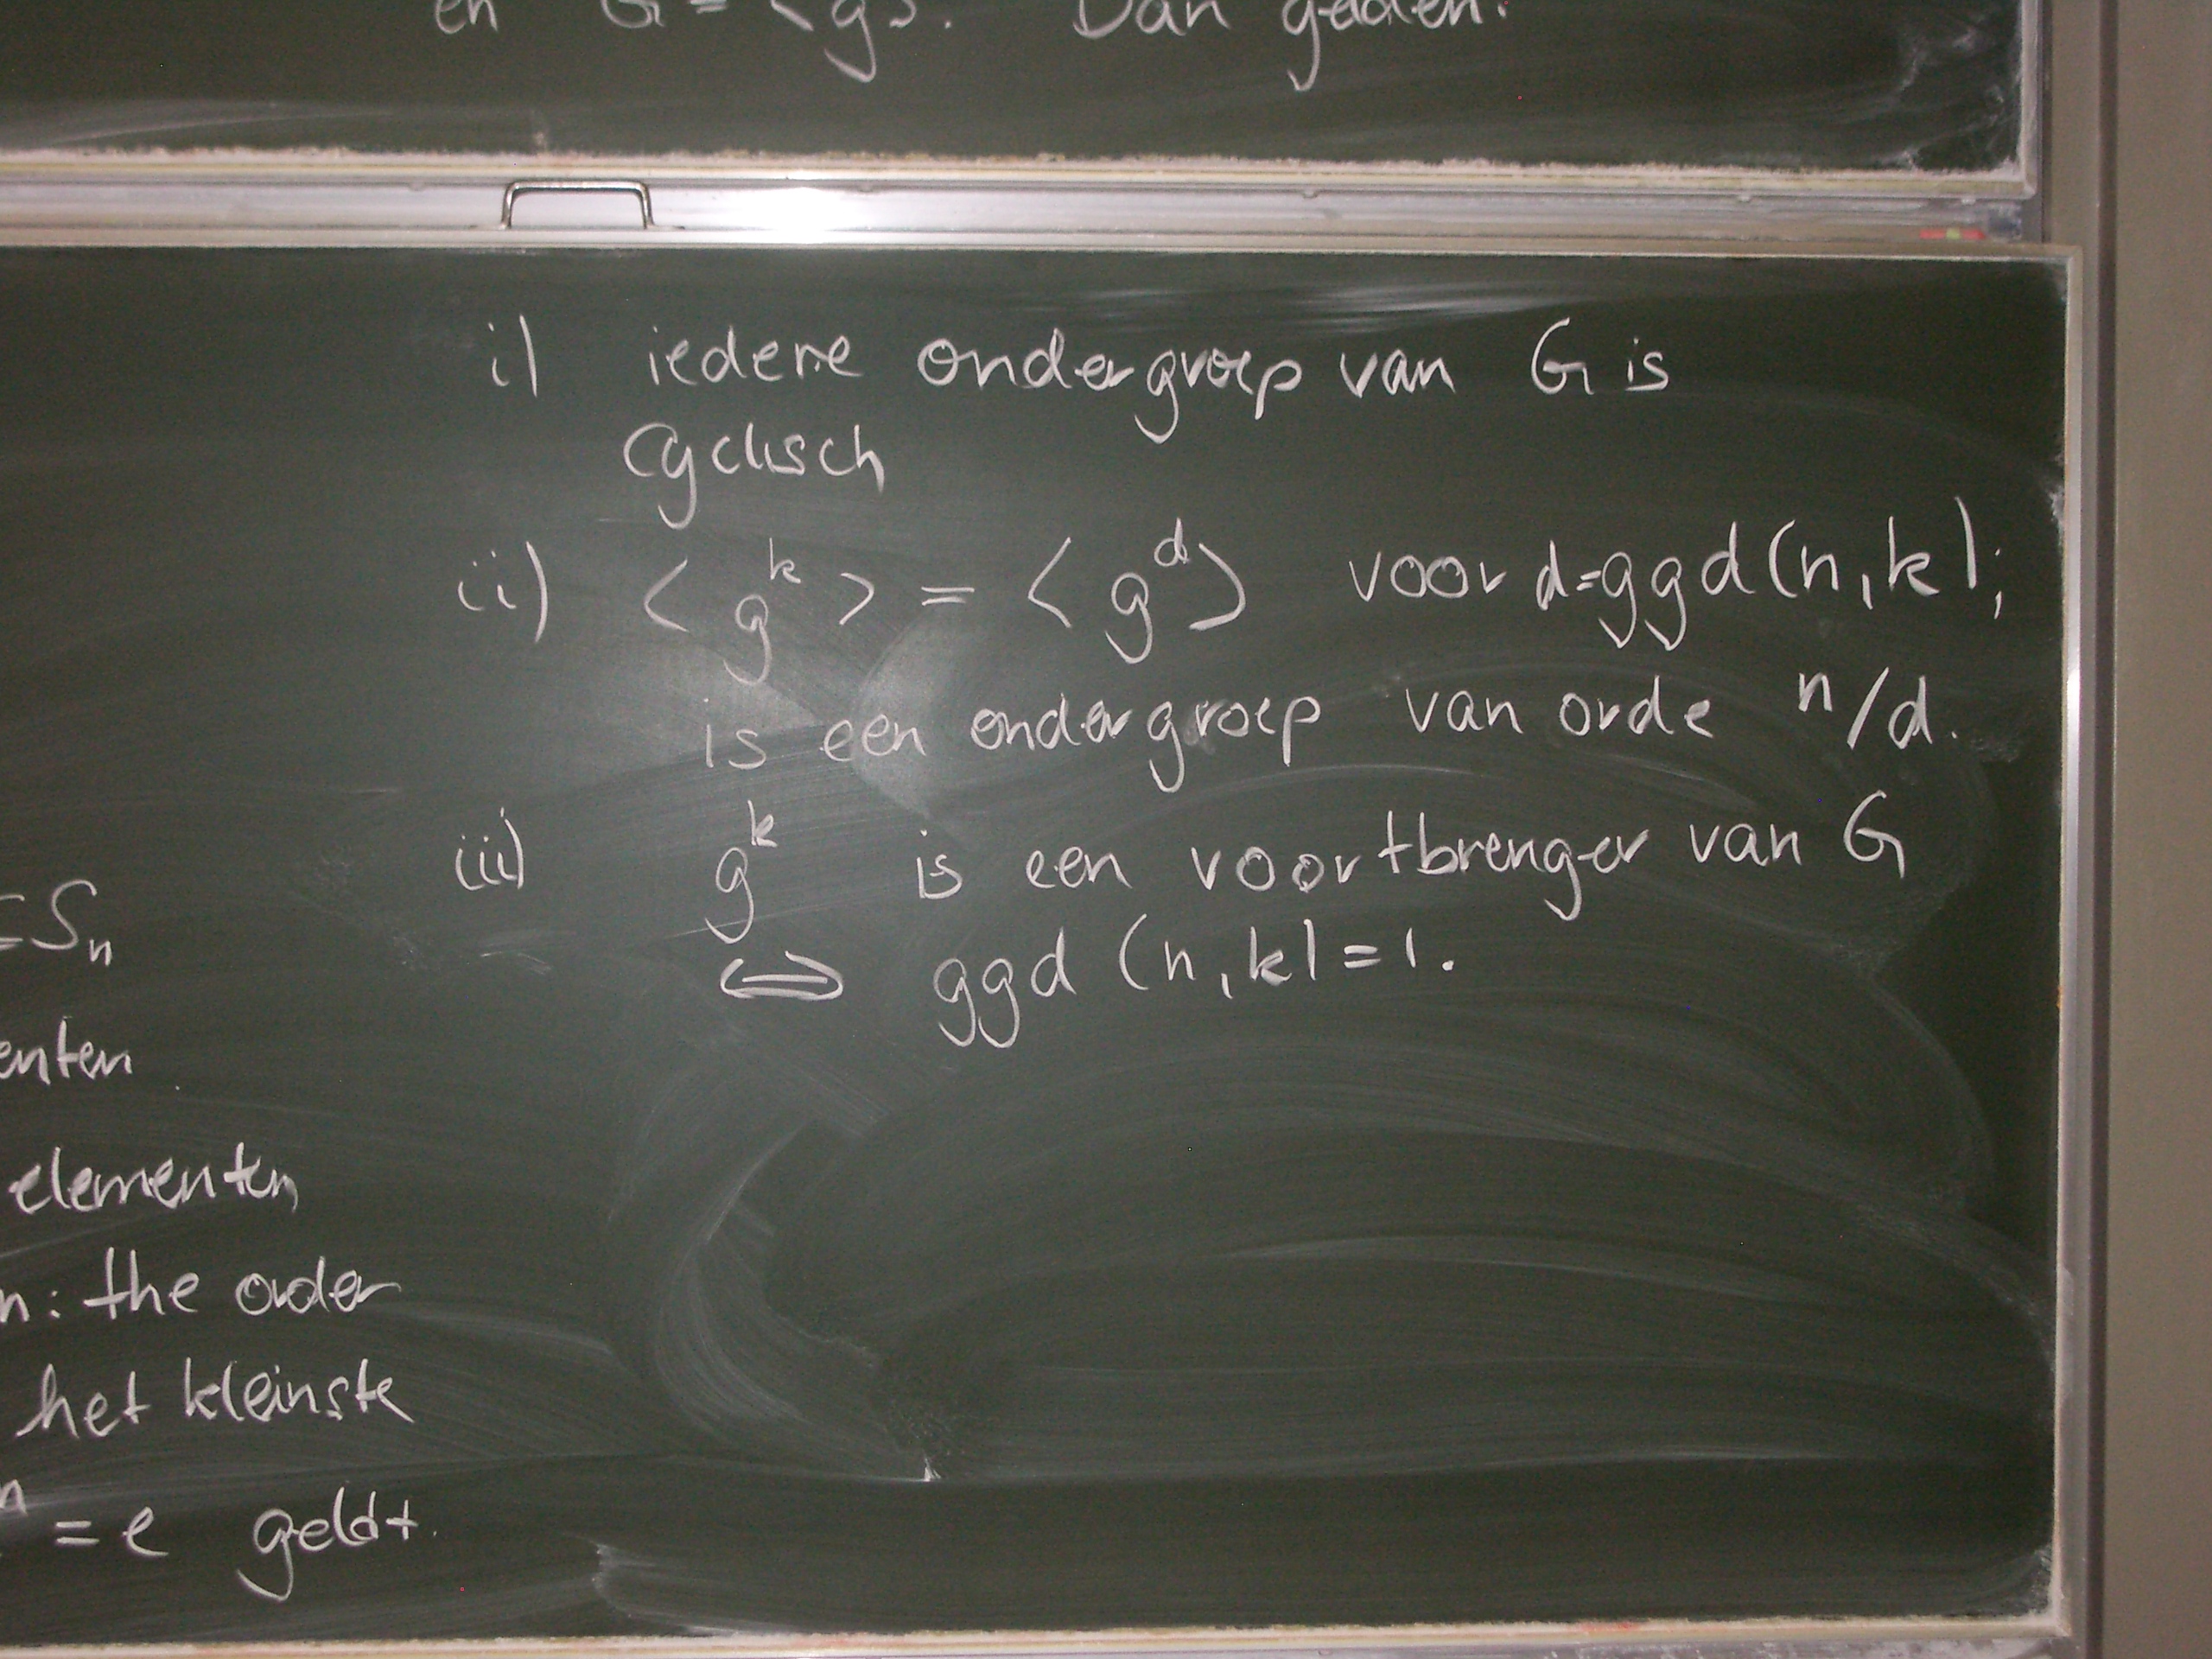 en G = <g>. Dan gelden:
i) iedere ondergroep van G is
cyclisch
ii) < g^k > = < g^d > voor d=ggd(n,k);
is een ondergroep van orde n/d.
iii) g^k is een voortbrenger van G
⇔ ggd (n,k)=1.
=Sn
enten
elementen
n: the order
het kleinste
n = e geldt.